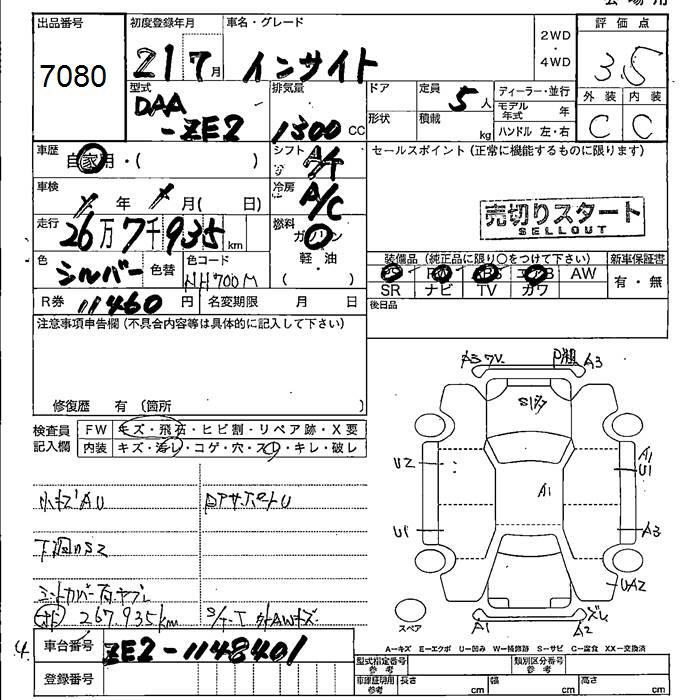 出品番号
7080
初度登録年月
21 7月
車名・グレード
インサイト
2WD
・
4WD
評価点
3.5
外装 内装
C C
型式
DAA
-ZE2
排気量
1300 CC
ドア
定員
5人
形状
積載
kg
ディーラー・並行
モデル年式 年
ハンドル 左・右
車歴
自家用・( )
シフト
A/T
セールスポイント(正常に機能するものに限ります)
車検
年 月( 日)
冷房
A/C
売切りスタート
SELLOUT
走行
26万7千935km
燃料
ガソリン
軽・油
( )
色
シルバー
色替
色コード
NH700M
装備品(純正品に限り○をつけて下さい)
PS PW ABS エアB AW
SR ナビ TV カワ
新車保証書
有・無
R券 11460 円
名変期限 月 日
後日品
注意事項申告欄(不具合内容等は具体的に記入して下さい)
修復歴 有 (箇所 )
検査員
記入欄
FW キズ・飛石・ヒビ割・リペア跡・X要
内装 キズ・汚レ・コゲ・穴・スレ・キレ・破レ
小キズAU
下廻りS2
267.935km
車台番号
ZE2-1148401
登録番号
A3
A3
A1
U2
A1
U1
U1
A3
UA2
A1
A2
スペア
A-キズ E-エクボ U-凹み W-補修跡 S-サビ C-腐食 XX-交換済
型式指定番号
参考
類別区分番号
参考
車庫証明用
参考
長さ cm
幅 cm
高さ cm